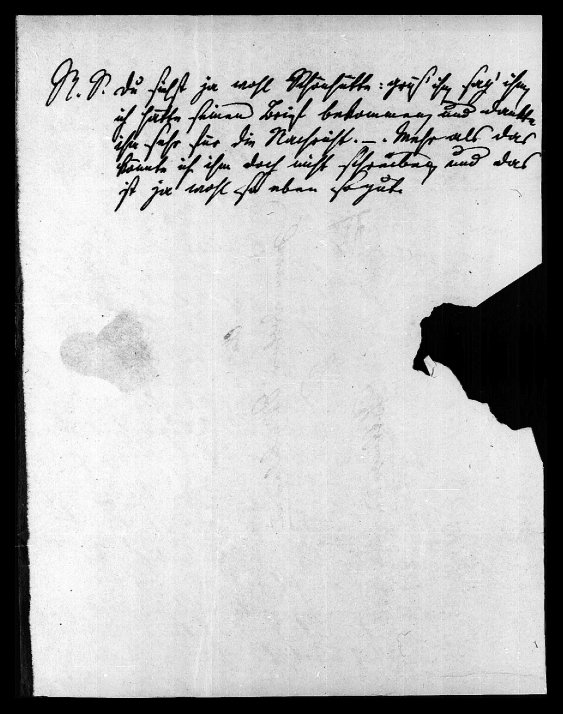 N. S. Du siehst ja wohl Schönhütte: grüs' ihn, sag' ihm,
ich hätte seinen Brief bekommen, und dankte
ihm sehr für die Nachricht. –. Mehr als das
könnte ich ihm doch nicht schreiben, und das
ist ja wohl so eben so gut.